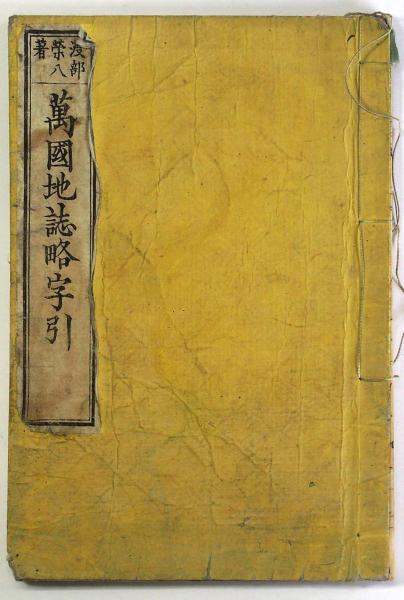 渡部
榮八
著
萬國地誌略字引